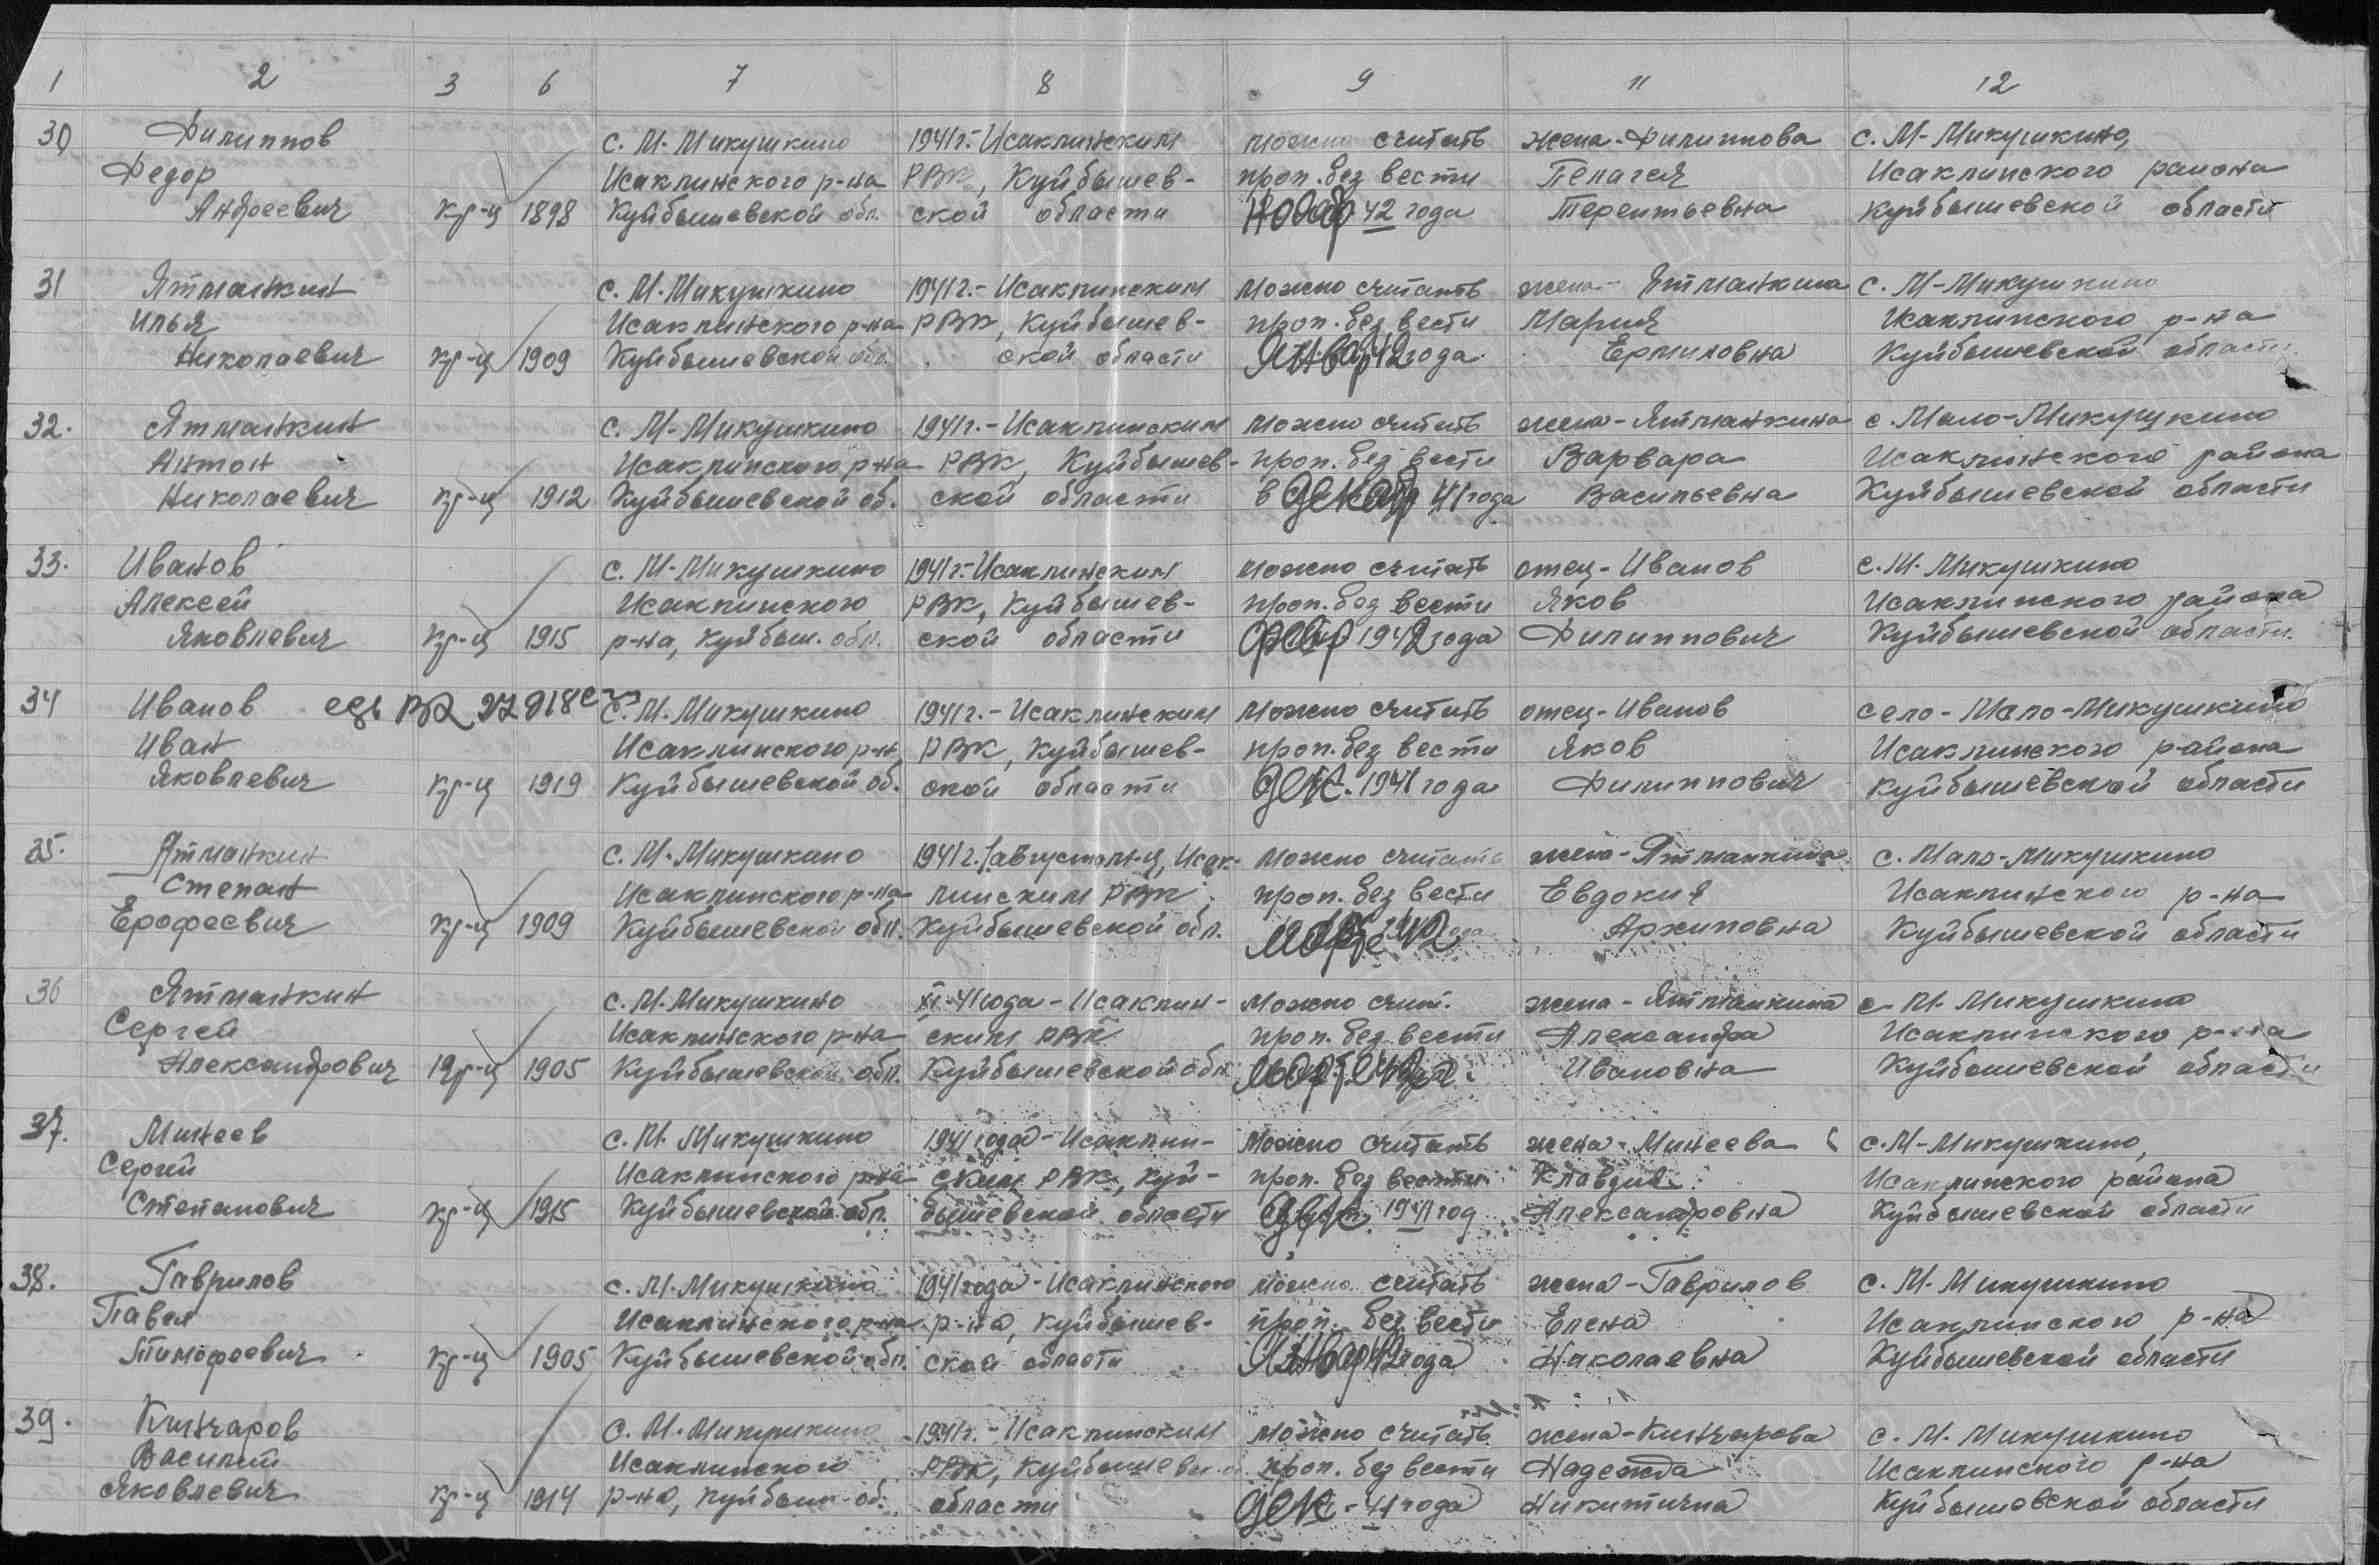 1 2 3 6 7 8 9 11 12
30 Филиппов с. М. Микушкино 1941г.- Исаклинским можно считать жена - Филиппова с. М- Микушкино,
Федор Исаклинского р-на РВК, Куйбышев- проп. без вести Пелагея Исаклинского района
Андреевич кр-ц 1898 Куйбышевской обл. ской области нояб 42 года Терентьевна Куйбышевской области
31 Ятманкин с. М. Микушкино 1941г.- Исаклинским можно считать жена - Ятманкина с. М-Микушкино
Илья Исаклинского р-на РВК, Куйбышев- проп. без вести Мария Исаклинского р-на
Николаевич кр-ц 1909 Куйбышевской обл. ской области Январ 42 года Ермиловна Куйбышевской области
32. Ятманкин с. М- Микушкино 1941г.- Исаклинским можно считать жена - Ятманкина с. Мало-Микушкино
Антон Исаклинского р-на РВК, Куйбышев- проп. без вести Варвара Исаклинского района
Николаевич кр-ц 1912 Куйбышевской об. ской области в декаб 41 года Васильевна Куйбышевской области
33. Иванов с. М- Микушкино 1941г.- Исаклинским можно считать отец - Иванов с. М. Микушкино
Алексей Исаклинского РВК, Куйбышев- проп. без вести Яков Исаклинского района
Яковлевич кр-ц 1915 р-на, Куйбыш. обл. ской области февр 1942 года Филиппович Куйбышевской области.
34 Иванов с. М. Микушкино 1941г.- Исаклинским можно считать отец - Иванов село - Мало-Микушкино
Иван Исаклинского р-н РВК, Куйбышев- проп. без вести Яков Исаклинского района
Яковлевич кр-ц 1919 Куйбышевской об. ской области дек. 1941 года Филиппович Куйбышевской области
35. Ятманкин с. М- Микушкино 1941г. Исак- можно считать жена - Ятманкина с. Мало-Микушкино
Степан Исаклинского р-на линским РВК проп. без вести Евдокия Исаклинского р-на
Ерофеевич кр-ц 1909 Куйбышевской обл. Куйбышевской обл. марте 42 года Архиповна Куйбышевской области
36 Ятманкин с. М. Микушкино XI-41 года - Исаклин- можно счит. жена - Ятманкина с М. Микушкино
Сергей Исаклинского р-на ским РВК проп. без вести Александра Исаклинского р-на
Александрович кр-ц 1905 Куйбышевской обл. Куйбышевской обл марте 42 г. Ивановна Куйбышевской области
37. Минеев с. М. Микушкино 1941 года - Исаклин- можно считать жена - Минеева с. М- Микушкино,
Сергей Исаклинского р-на ским РВК, Куй- проп. без вести Клавдия Исаклинского района
Степанович кр-ц 1915 Куйбышевской обл. бышевской области дек. 1941 год Александровна Куйбышевской области
38. Гаврилов с. М. Микушкино 1941 года - Исаклинского можно считать жена - Гаврилов с. М. Микушкино
Павел Исаклинского р-на р-на, Куйбышев- проп. без вести Елена Исаклинского р-на
Тимофеевич кр-ц 1905 Куйбышевской обл. ской области Январ 42 года Николаевна Куйбышевской области
39. Кинчаров с. М. Микушкино 1941г.- Исаклинским можно считать жена - Кинчарова с. М. Микушкино
Василий Исаклинского РВК, проп. без вести Надежда Исаклинского р-на
Яковлевич кр-ц 1914 р-на, Куйбыш-об. области дек - 41 года Никитична Куйбышевской области